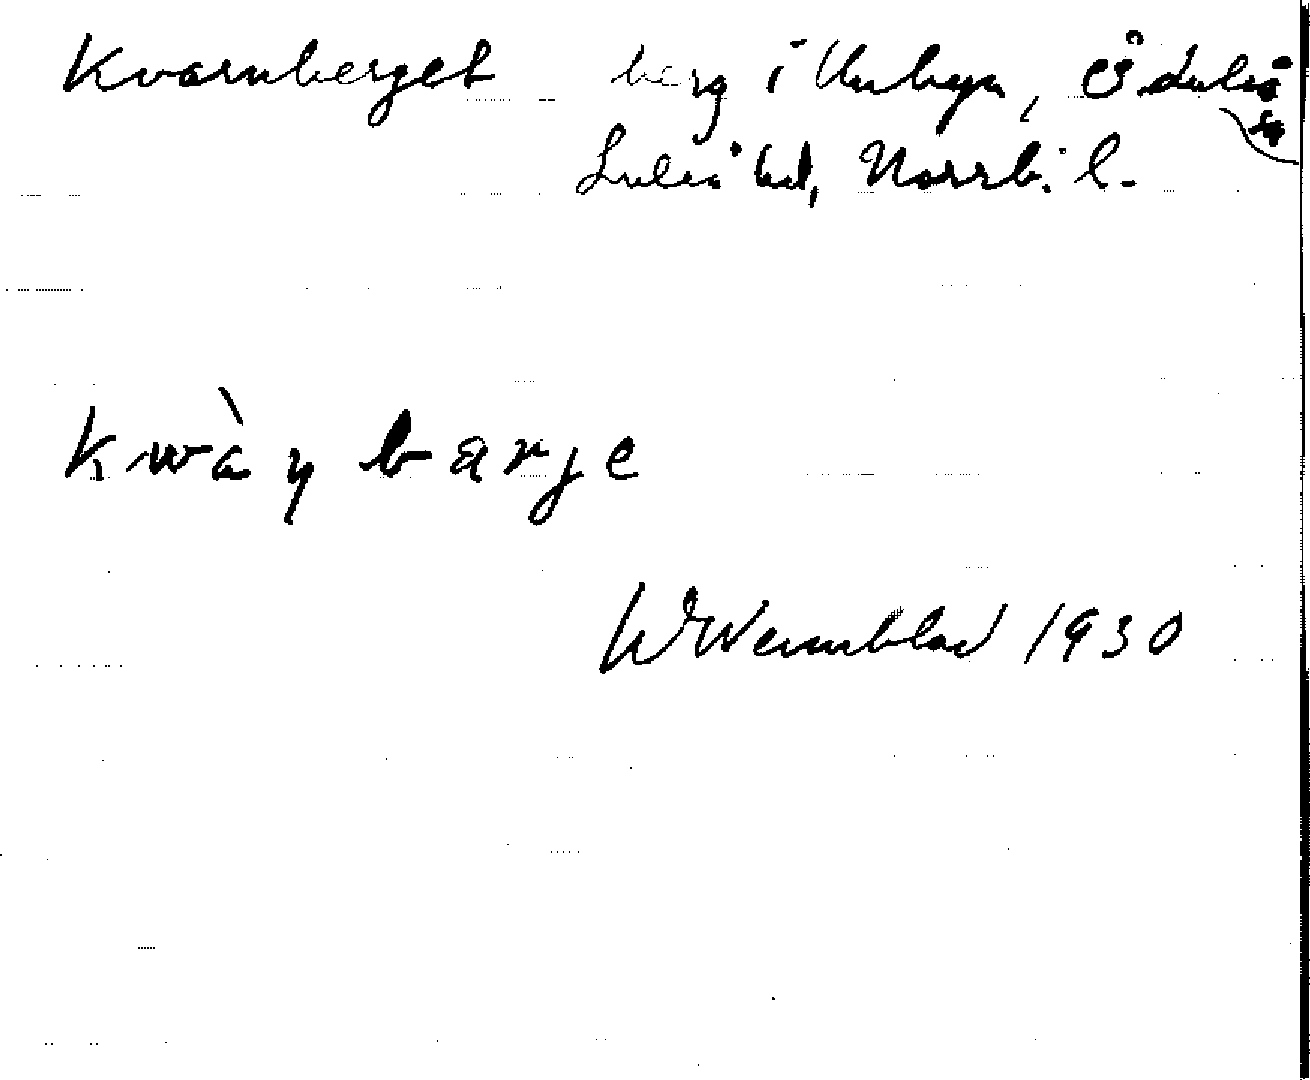 Kvarnberget berg i Unbyn, Ö Luleå sn
Luleå Norrb. l.
kwàɳ barje
W Wennblad 1930